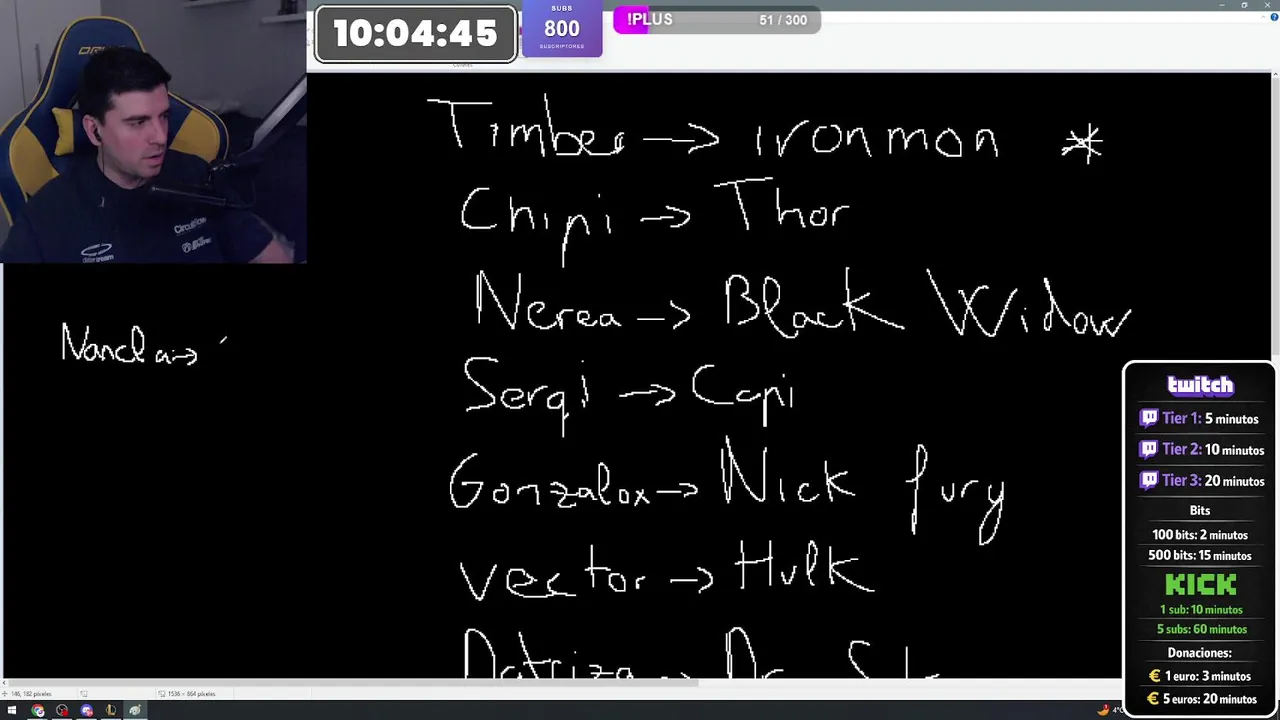 10:04:45
SUBS
800
SUSCRIPTORES
!PLUS 51 / 300
Timber → ironman *
Chipi → Thor
Nerea → Black Widow
Nancla →
Sergi → Capi
Gonzalox → Nick fury
Vector → Hulk
twitch
Tier 1: 5 minutos
Tier 2: 10 minutos
Tier 3: 20 minutos
Bits
100 bits: 2 minutos
500 bits: 15 minutos
KICK
1 sub: 10 minutos
5 subs: 60 minutos
Donaciones:
€ 1 euro: 3 minutos
€ 5 euros: 20 minutos
146, 182 píxeles
1536 × 864 píxeles